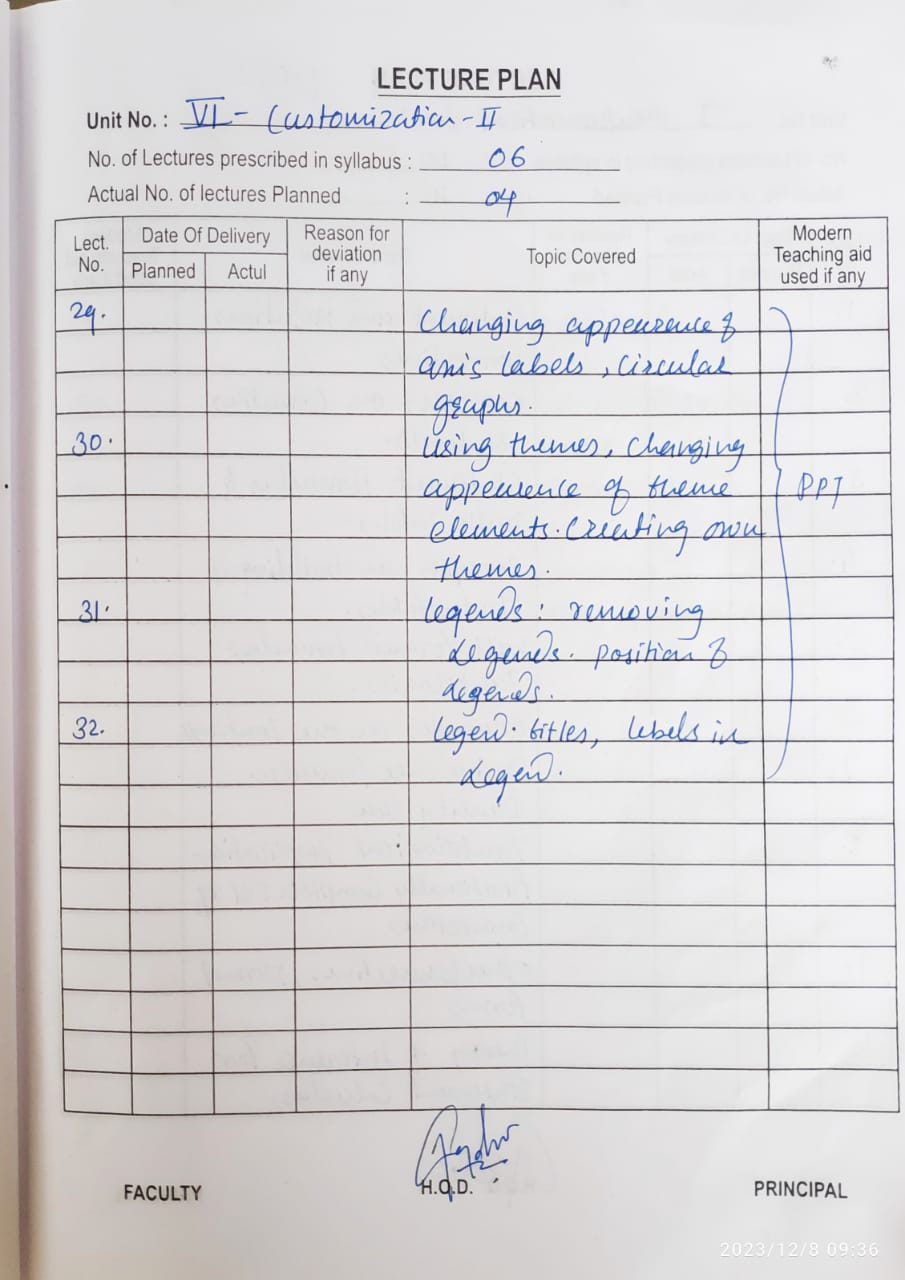 LECTURE PLAN
Unit No. : VI - Customization - II
No. of Lectures prescribed in syllabus : 06
Actual No. of lectures Planned : 04
Lect. No. Date Of Delivery Reason for deviation if any Topic Covered Modern Teaching aid used if any
Planned Actul
29. Changing appearence of
axis labels, Circular
graphs.
30. Using themes, Changing
appearence of theme PPT
elements. Creating own
themes.
31. legends : removing
legends. position of
legends.
32. legend. titles, labels in
legend.
FACULTY H.O.D. PRINCIPAL
2023/12/8 09:36